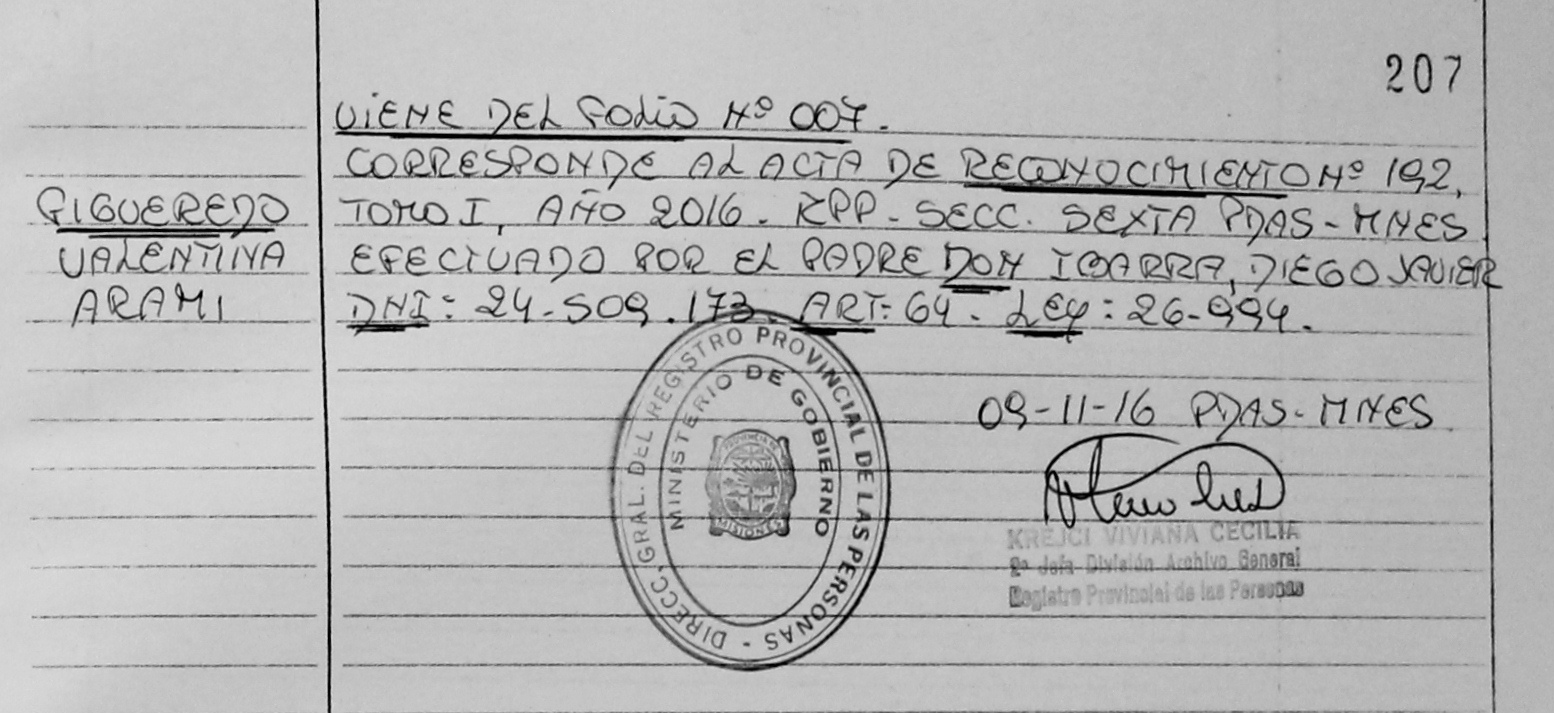 207
VIENE DEL FOLIO Nº 007.
CORRESPONDE AL ACTA DE RECONOCIMIENTO Nº 192,
FIGUEREDO
TOMO I, AÑO 2016. RPP - SECC. SEXTA PDAS - MNES
VALENTINA
EFECTUADO POR EL PADRE DON IBARRA, DIEGO JAVIER
ARAMI
DNI: 24-509.173. ART: 64. LEY: 26-994.
DIRECC. GRAL. DEL REGISTRO PROVINCIAL DE LAS PERSONAS -
MINISTERIO DE GOBIERNO
PROVINCIA DE
MISIONES
09-11-16 PDAS - MNES
KREJCI VIVIANA CECILIA
2º Jefa División Archivo General
Registro Provincial de las Personas